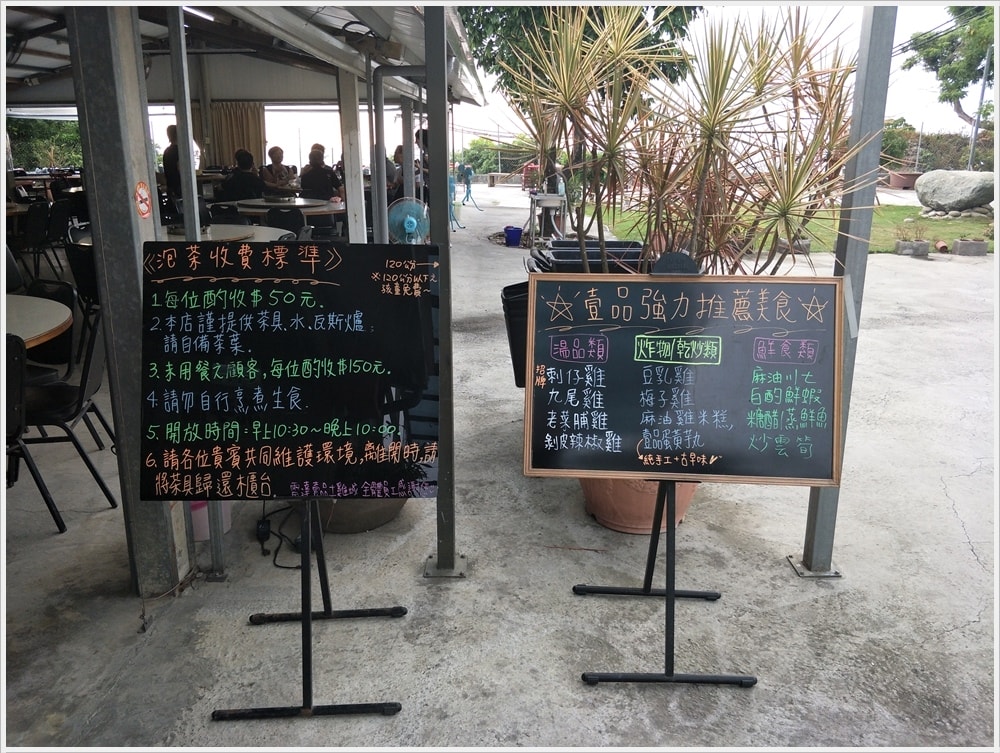 《泡茶收費標準》
120公分
※120公分以下之
孩童免費~
1.每位酌收$50元.
2.本店謹提供茶具、水、瓦斯爐.
請自備茶葉.
3.未用餐之顧客,每位酌收$150元.
4.請勿自行烹煮生食.
5.開放時間=早上10:30~晚上10:00.
6.請各位貴賓共同維護環境,離開時,請
將茶具歸還櫃台.
壹品土雞城 全體員工感謝
☆壹品強力推薦美食☆
湯品類
炸物/乾炒類
鮮食類
招牌
刺仔雞
九尾雞
老菜脯雞
剝皮辣椒雞
豆乳雞
梅子雞
麻油雞米糕,
壹品蛋黃
純手工+古早味
麻油川七
白酌鮮蝦
糖醋/蒸鮮魚
炒雲筍